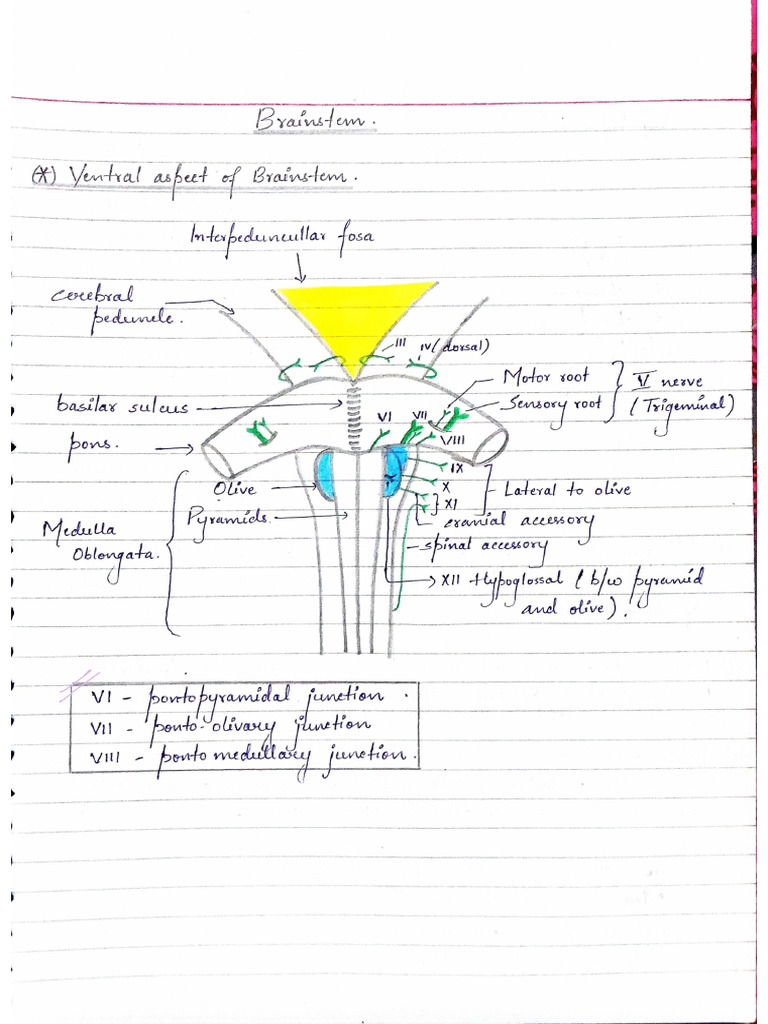 Brainstem.
(*) Ventral aspect of Brainstem.
Interpeduncullar fosa
Cerebral
peduncle.
III
IV (dorsal)
Motor root
Sensory root
V nerve
(Trigeminal)
basilar sulcus
pons.
VI
VII
VIII
IX
X
XI
Lateral to olive
Olive
Pyramids.
cranial accessory
Medulla
Oblongata.
spinal accessory
XII Hypoglossal (b/w pyramid
and olive).
VI - pontopyramidal junction.
VII - ponto-olivary junction
VIII - pontomedullary junction.